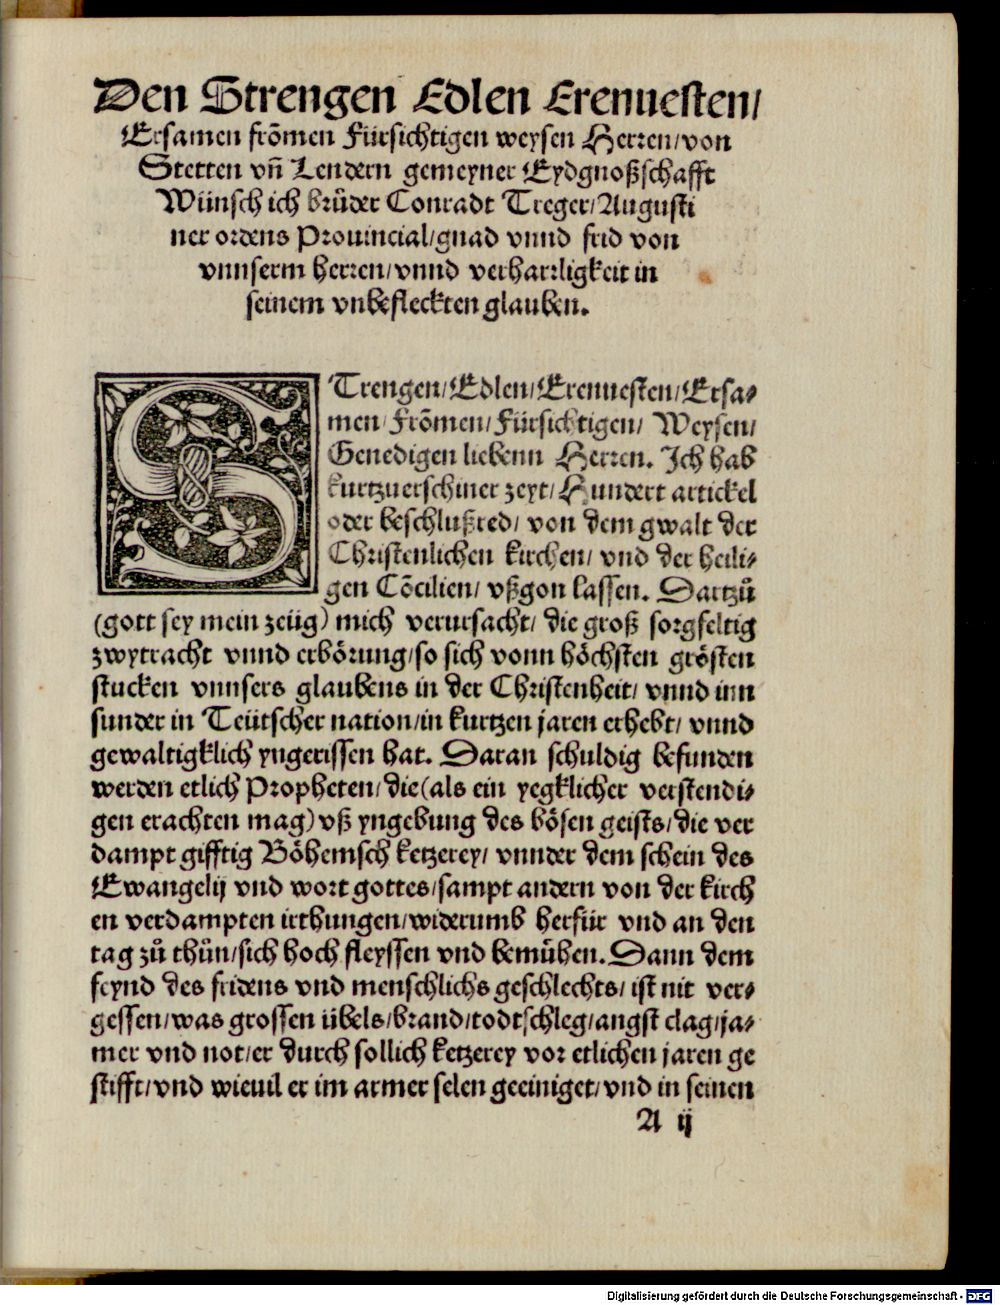 Den Strengen Edlen Erenuesten/
Ersamen frōmen Fürsichtigen weysen Herren/von
Stetten vn̄ Lendern gemeyner Eydgnoßschafft
Wünsch ich brůder Conradt Treger/Augusti
ner ordens Prouincial/gnad vnnd frid von
vnnserm herren/vnnd verharrligkeit in
seinem vnbefleckten glauben.
STrengen/Edlen/Erenuesten/Ersa⸗
men/Frōmen/Fürsichtigen/ Weysen/
Genedigen liebenn Herren. Ich hab
kurtzuerschiner zeyt/Hundert artickel
oder beschlußred/ von dem gwalt der
Christenlichen kirchen/ vnd der heili⸗
gen Cōcilien/ vßgon lassen. Dartzů
(gott sey mein zeüg) mich verursacht/ die groß sorgfeltig
zwytracht vnnd erbörung/so sich vonn höchsten grösten
stucken vnnsers glaubens in der Christenheit/ vnnd inn
sunder in Teütscher nation/in kurtzen jaren erhebt/ vnnd
gewaltigklich yngerissen hat. Daran schuldig befunden
werden etlich Propheten/die(als ein yegklicher verstendi⸗
gen erachten mag)vß yngebung des bösen geists/die ver
dampt gifftig Böhemsch ketzerey/ vnnder dem schein des
Ewangelij vnd wort gottes/sampt andern von der kirch
en verdampten irthungen/widerumb herfür vnd an den
tag zů thůn/sich hoch fleyssen vnd bemühen.Dann dem
feynd des fridens vnd menschlichs geschlechts/ ist nit ver⸗
gessen/was grossen übels/brand/todtschleg/angst clag/ja⸗
mer vnd not/er durch sollich ketzerey vor etlichen jaren ge
stifft/vnd wieuil er im armer selen geeiniget/vnd in seinen
A ij
Digitalisierung gefördert durch die Deutsche Forschungsgemeinschaft - DFG